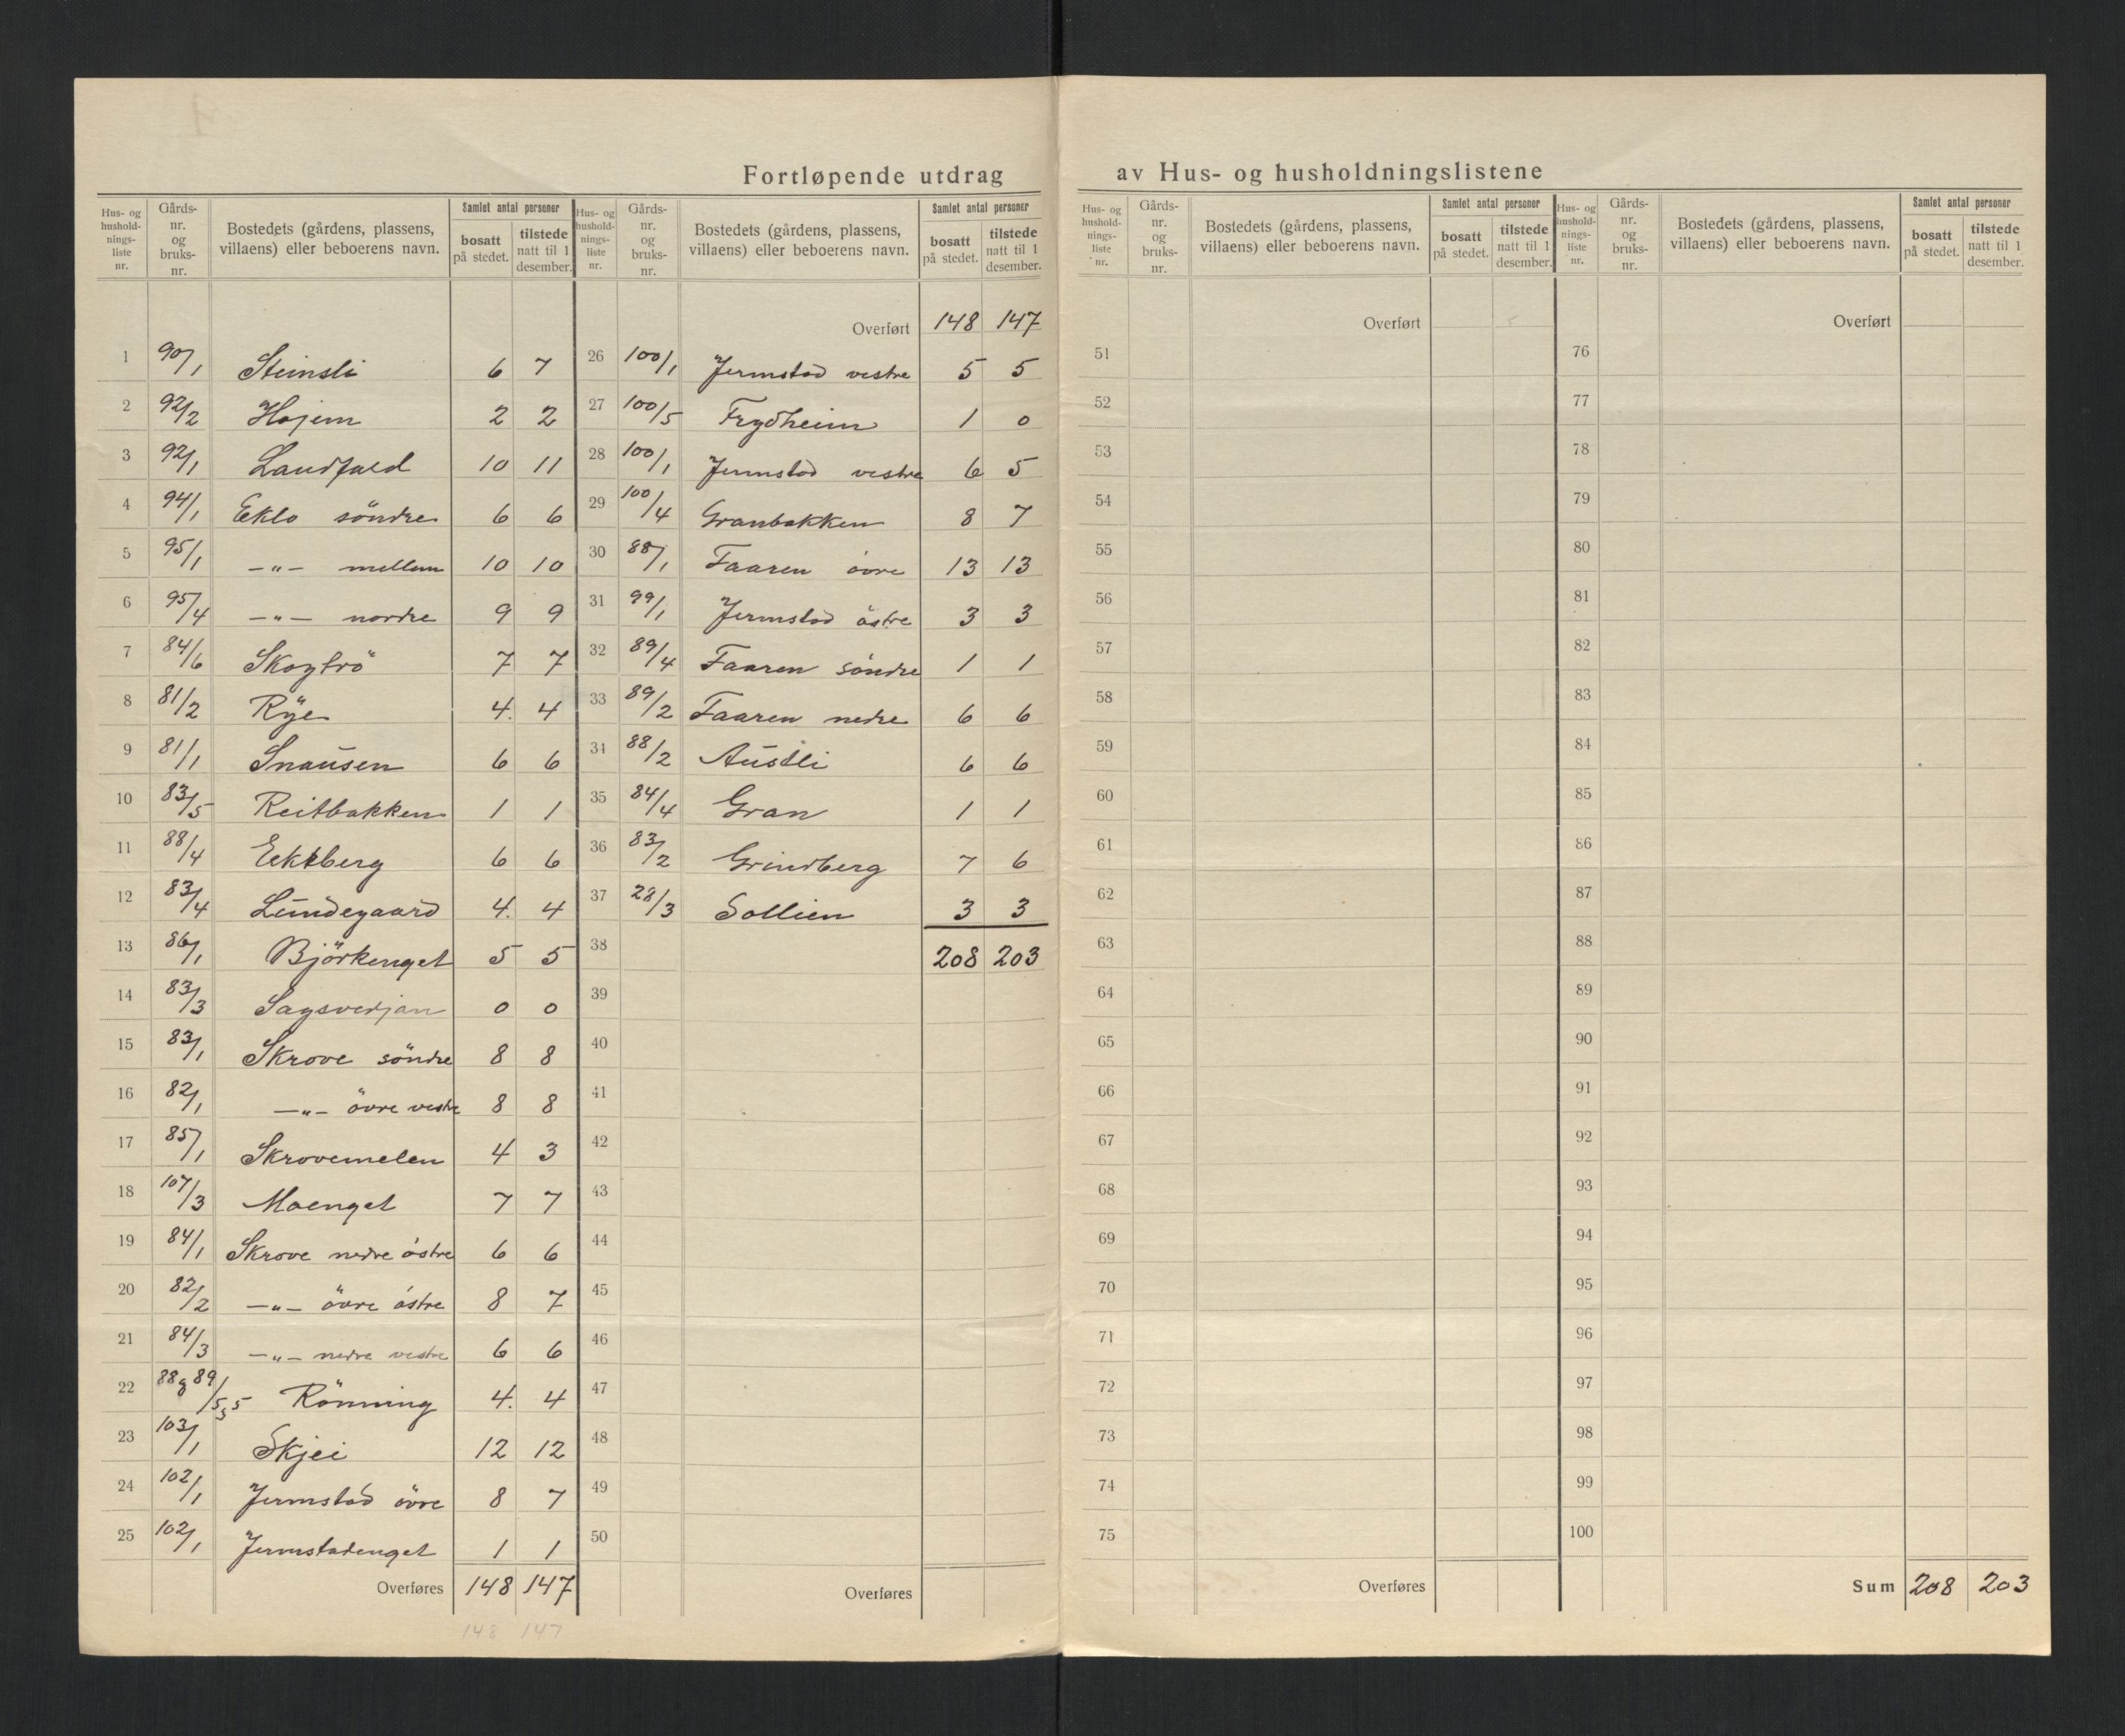 Fortløpende utdrag av Hus- og husholdningslistene
Hus- og hushold- nings- liste nr. | Gårds- nr. og bruks- nr. | Bostedets (gårdens, plassens, villaens) eller beboerens navn. | Samlet antal personer | bosatt på stedet. | tilstede natt til 1 desember.
1 90/1 Steinsli 6 7
2 92/2 Hojem 2 2
3 92/1 Landfald 10 11
4 94/1 Eklo söndre 6 6
5 95/1 —"— mellem 10 10
6 95/4 —"— nordre 9 9
7 84/6 Skogtrö 7 7
8 81/2 Rye 4. 4
9 81/1 Snausen 6 6
10 83/5 Reitbakken 1 1
11 88/4 Eekberg 6 6
12 83/4 Lundegaard 4. 4
13 86/1 Björkenget 5 5
14 83/3 Sagsverjan 0 0
15 83/1 Skrove söndre 8 8
16 82/1 —"— övre vestre 8 8
17 85/1 Skrovemelen 4 3
18 107/3 Moenget 7 7
19 84/1 Skrove nedre östre 6 6
20 82/2 —"— övre östre 8 7
21 84/3 —"— nedre vestre 6 6
22 88 & 89/5,5 Rönning 4. 4
23 103/1 Skjei 12 12
24 102/1 Jermstad övre 8 7
25 102/1 Jermstadenget 1 1
Overføres 148 147
148 147
Hus- og hushold- nings- liste nr. | Gårds- nr. og bruks- nr. | Bostedets (gårdens, plassens, villaens) eller beboerens navn. | Samlet antal personer | bosatt på stedet. | tilstede natt til 1 desember.
Overført 148 147
26 100/1 Jermstad vestre 5 5
27 100/5 Frydheim 1 0
28 100/1 Jermstad vestre 6 5
29 100/4 Granbakken 8 7
30 88/1 Faaren övre 13 13
31 99/1 Jermstad östre 3 3
32 89/4 Faaren söndre 1 1
33 89/2 Faaren nedre 6 6
34 88/2 Austli 6 6
35 84/4 Gran 1 1
36 83/2 Grindberg 7 6
37 28/3 Sollien 3 3
38 208 203
39
40
41
42
43
44
45
46
47
48
49
50
Overføres
Hus- og hushold- nings- liste nr. | Gårds- nr. og bruks- nr. | Bostedets (gårdens, plassens, villaens) eller beboerens navn. | Samlet antal personer | bosatt på stedet. | tilstede natt til 1 desember.
Overført
51
52
53
54
55
56
57
58
59
60
61
62
63
64
65
66
67
68
69
70
71
72
73
74
75
Overføres
Hus- og hushold- nings- liste nr. | Gårds- nr. og bruks- nr. | Bostedets (gårdens, plassens, villaens) eller beboerens navn. | Samlet antal personer | bosatt på stedet. | tilstede natt til 1 desember.
Overført
76
77
78
79
80
81
82
83
84
85
86
87
88
89
90
91
92
93
94
95
96
97
98
99
100
Sum 208 203